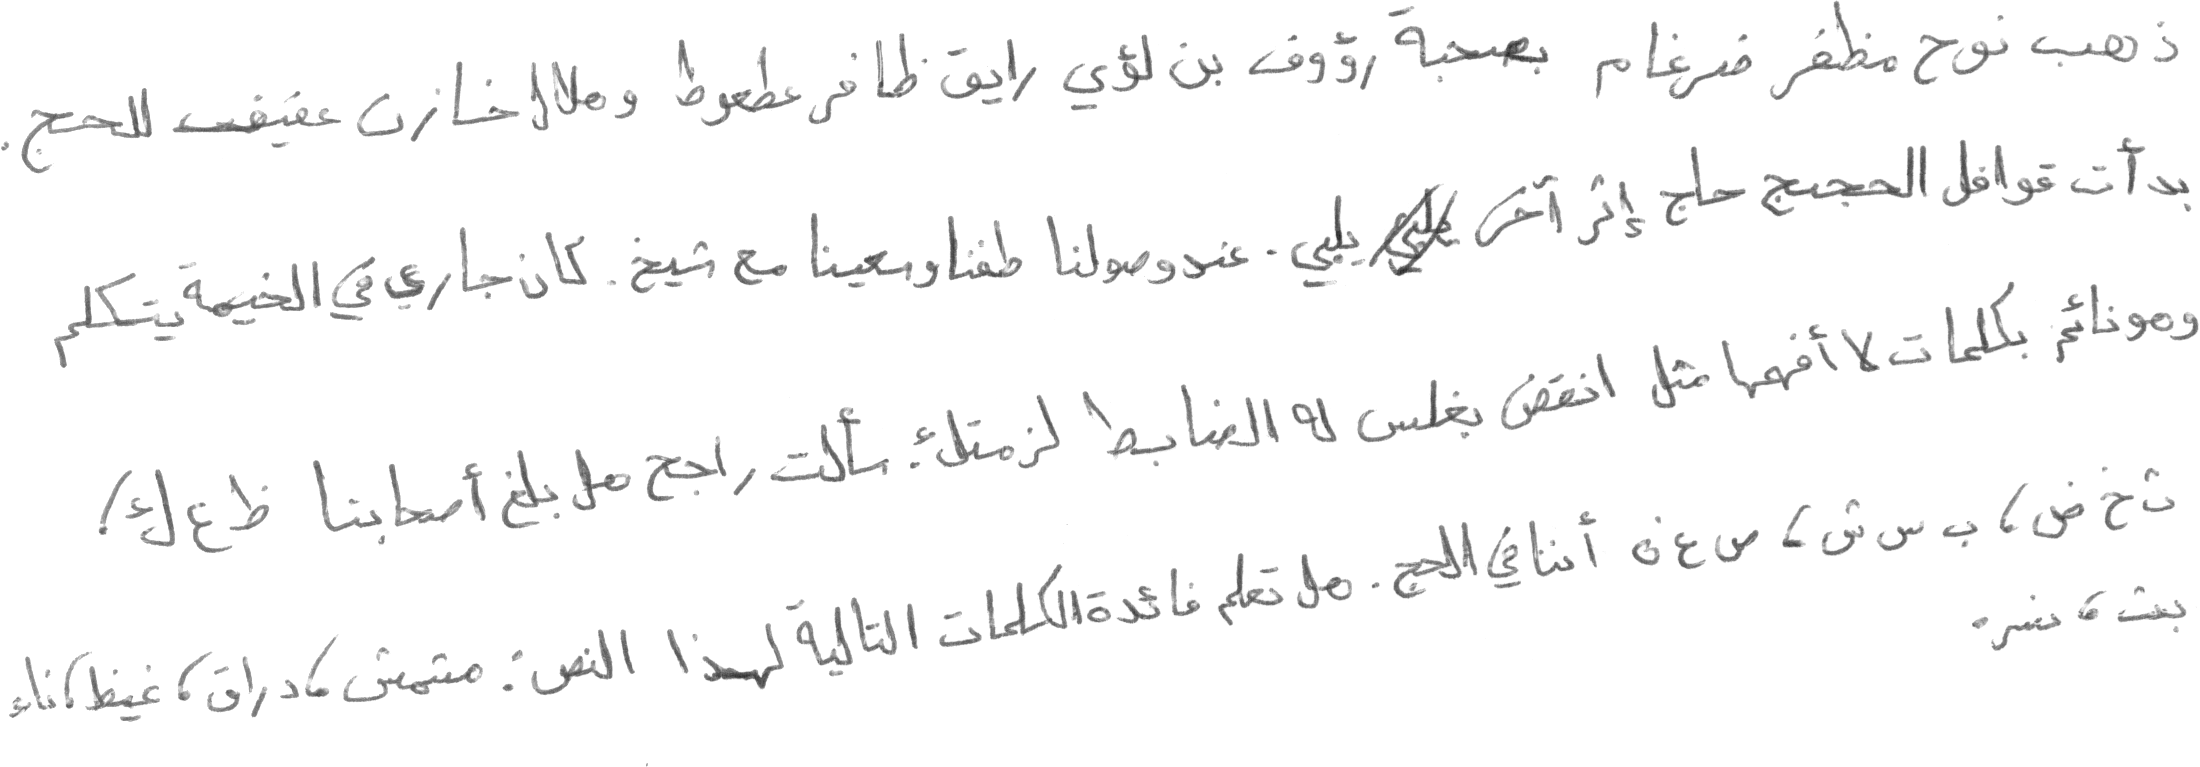 ذهب نوح مظفر ضرغام بصحبة رؤوف بن لؤي رايق ظافر عطعوط وهلال خازن عفيف للحج.
بدأت قوافل الحجيج حاج إثر آخر يلبي. عند وصولنا طفنا وسعينا مع شيخ. كان جاري في الخيمة يتكلم
وهو نائم بكلمات لا أفهمها مثل انقض بغلس له الضابط لزمتك؛ سألت راجح هل بلغ أصحابنا ظ ع ك!
ث خ ض، ب س ش، ص ع ة أننا في الحج. هل تعلم فائدة الكلمات التالية لهذا النص: مشمش، دراق، غيظ، ناء
بث، نسر.